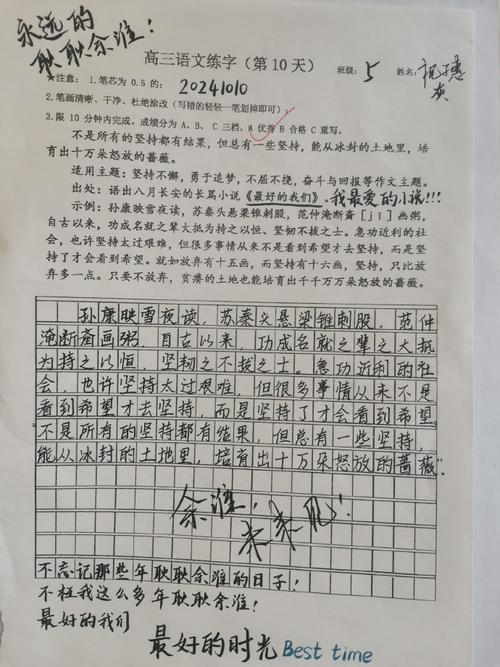 永远的
耿耿余淮！
高三语文练字（第10天） 班级：5 姓名：
★注意：1.笔芯为0.5的； 20241010
2.笔画清晰、干净、杜绝涂改（写错的轻轻一笔划掉即可）；
3.限10分钟内完成。成绩分为A、B、C三档，A优秀B合格C重写。
不是所有的坚持都有结果，但总有一些坚持，能从冰封的土地里，培
育出十万朵怒放的蔷薇。
适用主题：坚持不懈，勇于追梦，不屈不挠，奋斗与回报等作文主题。
出处：语出八月长安的长篇小说《最好的我们》。我最爱的小说!!!
示例：孙康映雪夜读，苏秦头悬梁锥刺股，范仲淹断齑［jī］画粥，
自古以来，功成名就之辈大抵为持之以恒、坚韧不拔之士。急功近利的社
会，也许坚持太过艰难，但很多事情从来不是看到希望才去坚持，而是坚
持了才会看到希望。就如放弃有十五画，而坚持有十六画，坚持，只比放
弃多一点。只要不放弃，贫瘠的土地也能培育出千千万万朵怒放的蔷薇。
孙康映雪夜读，苏秦头悬梁锥刺股，范仲
淹断齑画粥，自古以来，功成名就之辈之大抵
为持之以恒，坚韧之不拔之士。急功近利的社
会，也许坚持太过艰难，但很多事情从来不是
看到希望才去坚持，而是坚持了才会看到希望。
不是所有的坚持都有结果，但总有一些坚持，
能从冰封的土地里，培育出十万朵怒放的蔷薇。
余淮，
不忘记那些年耿耿余淮的日子！
不枉我这么多年耿耿余淮！
最好的我们
最好的时光 Best time